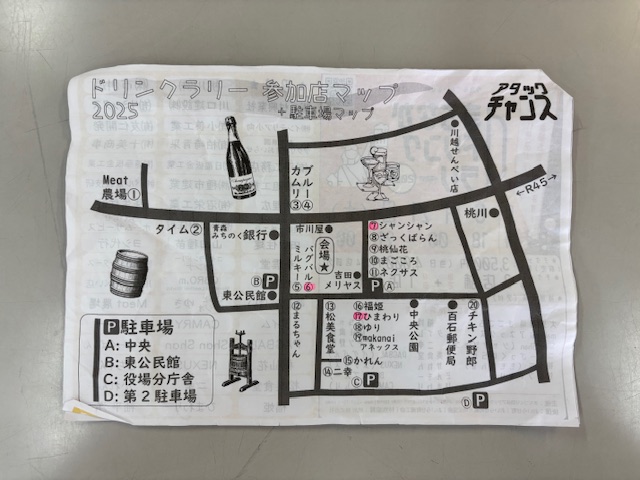 ドリンクラリー 参加店マップ
2025
+駐車場マップ
アタック
チャンス
川越せんべい店
←R45→
Meat
農場①
カムリ③
ブルー④
桃川
タイム②
青森
みちのく銀行
市川屋
会場★
ミルキー⑤
バグパル⑥
吉田
メリヤス
⑦シャンシャン
⑧ざっくばらん
⑨桃仙花
⑩まごころ
⑪ネクサス
P A
B P
東公民館
⑫まるちゃん
⑬松美食堂
⑭二幸
⑮かれん
⑯福姫
⑰ひまわり
⑱ゆり
⑲makanai
アネックス
中央公園
百石郵便局
⑳チキン野郎
C P
D P
P駐車場
A: 中央
B: 東公民館
C: 役場分庁舎
D: 第2駐車場